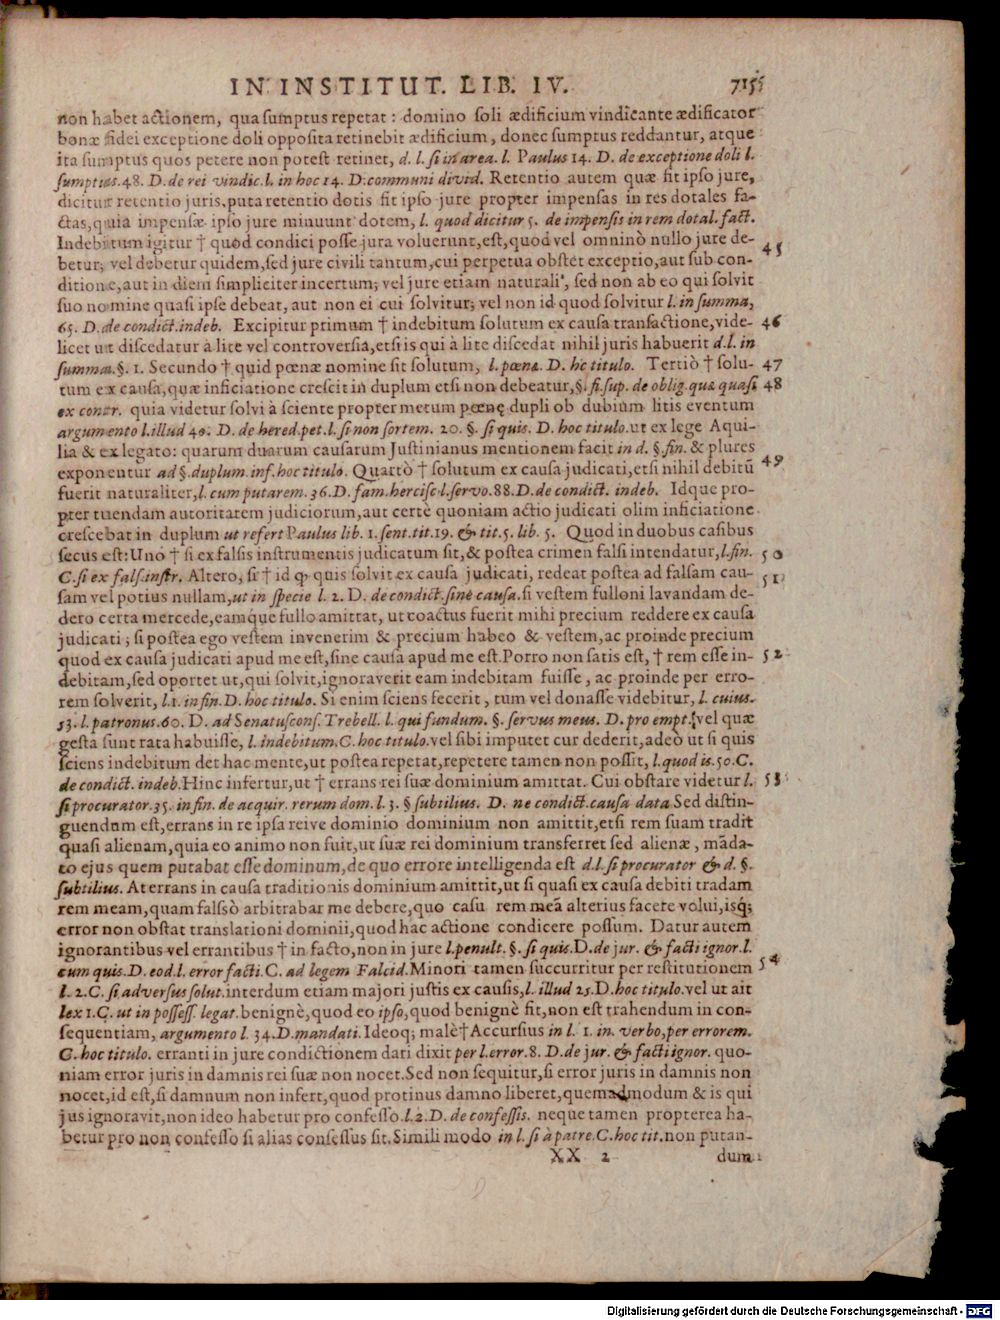 IN INSTITUT. LIB. IV. 715
non habet actionem, qua sumptus repetat: domino soli ædificium vindicante ædificator
bonæ fidei exceptione doli opposita retinebit ædificium, donec sumptus reddantur, atque
ita sumptus quos petere non potest retinet, d. l. si in area. l. Paulus 14. D. de exceptione doli l.
sumptus.48. D. de rei vindic. l. in hoc 14. D. communi divid. Retentio autem quæ fit ipso jure,
dicitur retentio juris, puta retentio dotis fit ipso jure propter impensas in res dotales fa-
ctas, quia impensæ ipso jure minuunt dotem, l. quod dicitur 5. de impensis in rem dotal. fact.
Indebitum igitur † quod condici posse jura voluerunt, est, quod vel omninò nullo jure de- 45
betur; vel debetur quidem, sed jure civili tantum, cui perpetua obstet exceptio, aut sub con-
ditione, aut in diem simpliciter incertum; vel jure etiam naturali, sed non ab eo qui solvit
suo nomine quasi ipse debeat, aut non ei cui solvitur; vel non id quod solvitur l. in summa,
65. D. de condict. indeb. Excipitur primum † indebitum solutum ex causa transactione, vide- 46
licet ut discedatur à lite vel controversia, etsi is qui à lite discedat nihil juris habuerit d. l. in
summa. §. 1. Secundo † quid pœnæ nomine sit solutum, l. pœnæ. D. hc titulo. Tertiò † solu- 47
tum ex causa, quæ inficiatione crescit in duplum etsi non debeatur, §. fi. sup. de oblig. quæ quasi 48
ex contr. quia videtur solvi à sciente propter metum pœnę dupli ob dubium litis eventum
argumento l. illud 40. D. de hered. pet. l. si non sortem. 20. §. si quis. D. hoc titulo. ut ex lege Aqui-
lia & ex legato: quarum duarum causarum Justinianus mentionem facit in d. §. fin. & plures
exponentur ad §. duplum. inf. hoc titulo. Quartò † solutum ex causa judicati, etsi nihil debitū 49
fuerit naturaliter, l. cum putarem. 36. D. fam. hercisc. l. servo. 88. D. de condict. indeb. Idque pro-
pter tuendam autoritatem judiciorum, aut certè quoniam actio judicati olim inficiatione
crescebat in duplum ut refert Paulus lib. 1. sent. tit. 19. & tit. 5. lib. 5. Quod in duobus casibus
secus est: Uno † si ex falsis instrumentis judicatum sit, & postea crimen falsi intendatur, l. fin. 50
C. si ex fals. instr. Altero, si † id qȝ quis solvit ex causa judicati, redeat postea ad falsam cau- 51
sam vel potius nullam, ut in specie l. 2. D. de condict. sine causa. si vestem fulloni lavandam de-
dero certa mercede, eamque fullo amittat, ut coactus fuerit mihi precium reddere ex causa
judicati; si postea ego vestem invenerim & precium habeo & vestem, ac proinde precium
quod ex causa judicati apud me est, sine causa apud me est. Porro non satis est, † rem esse in- 52
debitam, sed oportet ut, qui solvit, ignoraverit eam indebitam fuisse, ac proinde per erro-
rem solverit, l. 1. in fin. D. hoc titulo. Si enim sciens fecerit, tum vel donasse videbitur, l. cuius.
53. l. patronus. 60. D. ad Senatuscons. Trebell. l. qui fundum. §. servus meus. D. pro empt. vel quæ
gesta sunt rata habuisse, l. indebitum. C. hoc titulo. vel sibi imputet cur dederit, adeò ut si quis
sciens indebitum det hac mente, ut postea repetat, repetere tamen non possit, l. quod is. 50. C.
de condict. indeb. Hinc infertur, ut † errans rei suæ dominium amittat. Cui obstare videtur l. 53
si procurator. 35. in fin. de acquir. rerum dom. l. 3. § subtilius. D. ne condict. causa data Sed distin-
guendum est, errans in re ipsa reive dominio dominium non amittit, etsi rem suam tradit
quasi alienam, quia eo animo non fuit, ut suæ rei dominium transferret sed alienæ, māda-
to ejus quem putabat esse dominum, de quo errore intelligenda est d. l. si procurator & d. §.
subtilius. At errans in causa traditionis dominium amittit, ut si quasi ex causa debiti tradam
rem meam, quam falsò arbitrabar me debere, quo casu rem meā alterius facere volui, isq;
error non obstat translationi dominii, quod hac actione condicere possum. Datur autem
ignorantibus vel errantibus † in facto, non in jure l. penult. §. si quis. D. de jur. & facti ignor. l.
cum quis. D. eod. l. error facti. C. ad legem Falcid. Minori tamen succurritur per restitutionem 54
l. 2. C. si adversus solut. interdum etiam majori justis ex causis, l. illud 25. D. hoc titulo. vel ut ait
lex 1. C. ut in possess. legat. benignè, quod eo ipso, quod benignè fit, non est trahendum in con-
sequentiam, argumento l. 34. D. mandati. Ideoq; malè † Accursius in l. 1. in. verbo, per errorem.
C. hoc titulo. erranti in jure condictionem dari dixit per l. error. 8. D. de jur. & facti ignor. quo-
niam error juris in damnis rei suæ non nocet. Sed non sequitur, si error juris in damnis non
nocet, id est, si damnum non infert, quod protinus damno liberet, quemadmodum & is qui
jus ignoravit, non ideo habetur pro confesso. l. 2. D. de confessis. neque tamen propterea ha-
betur pro non confesso si alias confessus sit. Simili modo in l. si à patre. C. hoc tit. non putan-
XX 2 dum
Digitalisierung gefördert durch die Deutsche Forschungsgemeinschaft - DFG